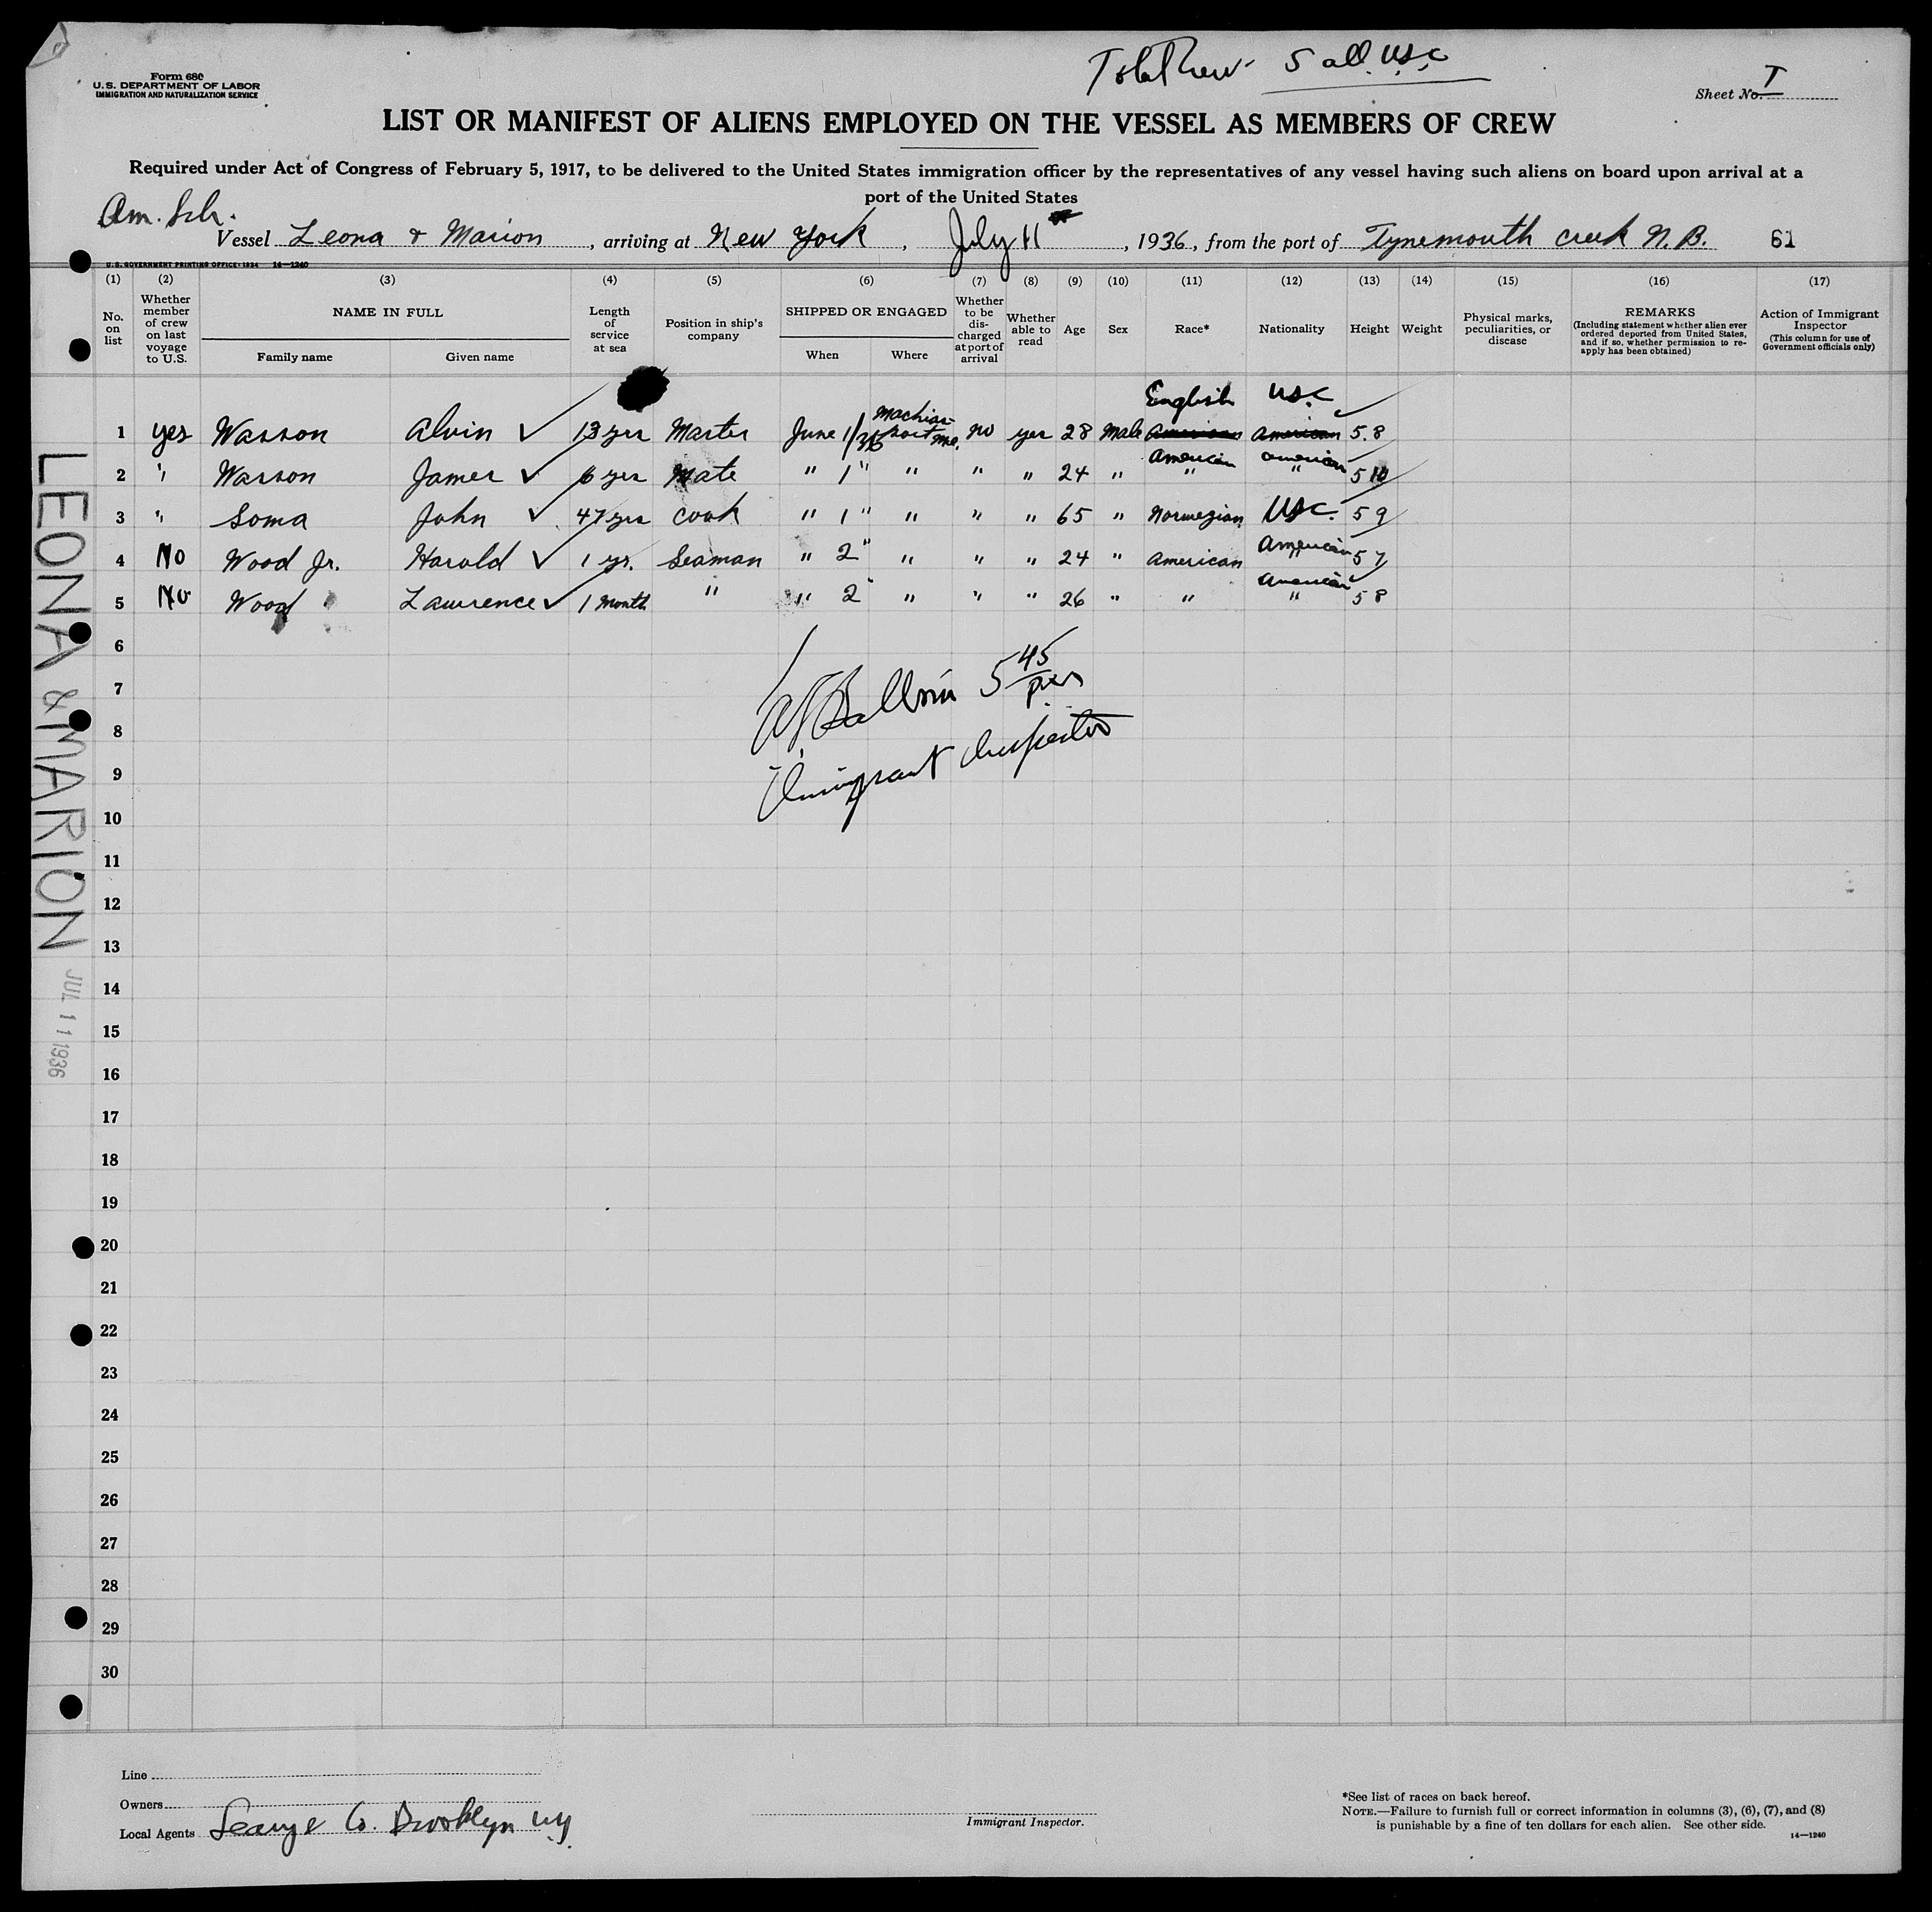 5 all USC
Form 680
U.S. DEPARTMENT OF LABOR
IMMIGRATION AND NATURALIZATION SERVICE
Sheet No.
LIST OR MANIFEST OF ALIENS EMPLOYED ON THE VESSEL AS MEMBERS OF CREW
Required under Act of Congress of February 5, 1917, to be delivered to the United States immigration officer by the representatives of any vessel having such aliens on board upon arrival at a
port of the United States
Am. Sch.
Vessel Leona & Marion, arriving at New York, July 11, 1936, from the port of Tynemouth Creek N.B. 61
U.S. GOVERNMENT PRINTING OFFICE: 1934 14—1240
(1) (2) (3) (4) (5) (6) (7) (8) (9) (10) (11) (12) (13) (14) (15) (16) (17)
No. on list
Whether member of crew on last voyage to U.S.
NAME IN FULL
Family name Given name
Length of service at sea
Position in ship's company
SHIPPED OR ENGAGED
When Where
Whether to be discharged at port of arrival
Whether able to read
Age
Sex
Race*
Nationality
Height
Weight
Physical marks, peculiarities, or disease
REMARKS
(Including statement whether alien ever ordered deported from United States, and if so, whether permission to reapply has been obtained)
Action of Immigrant Inspector
(This column for use of Government officials only)
English USC
1 yes Wasson Alvin ✓ 13 yrs Master June 1/36 Machiasport Me. No yes 28 Male American American 5.8
American American
2 " Wasson James ✓ 6 yrs Mate " 1 " " " " 24 " " " 5 10
3 " Soma John ✓ 47 yrs Cook " 1 " " " " 65 " Norwegian USC. 5 9
American
4 No Wood Jr. Harold ✓ 1 yr. Seaman " 2 " " " " 24 " American " 5 7
American
5 No Wood Lawrence ✓ 1 month " " 2 " " " " 26 " " " 5 8
6
7
8
9
10
11
12
13
14
15
16
17
18
19
20
21
22
23
24
25
26
27
28
29
30
5 45
Immigrant Inspector
LEONA & MARION
JUL 11 1936
Line
Owners
Local Agents Co. Brooklyn NY
Immigrant Inspector.
*See list of races on back hereof.
NOTE.—Failure to furnish full or correct information in columns (3), (6), (7), and (8)
is punishable by a fine of ten dollars for each alien. See other side.
14—1240